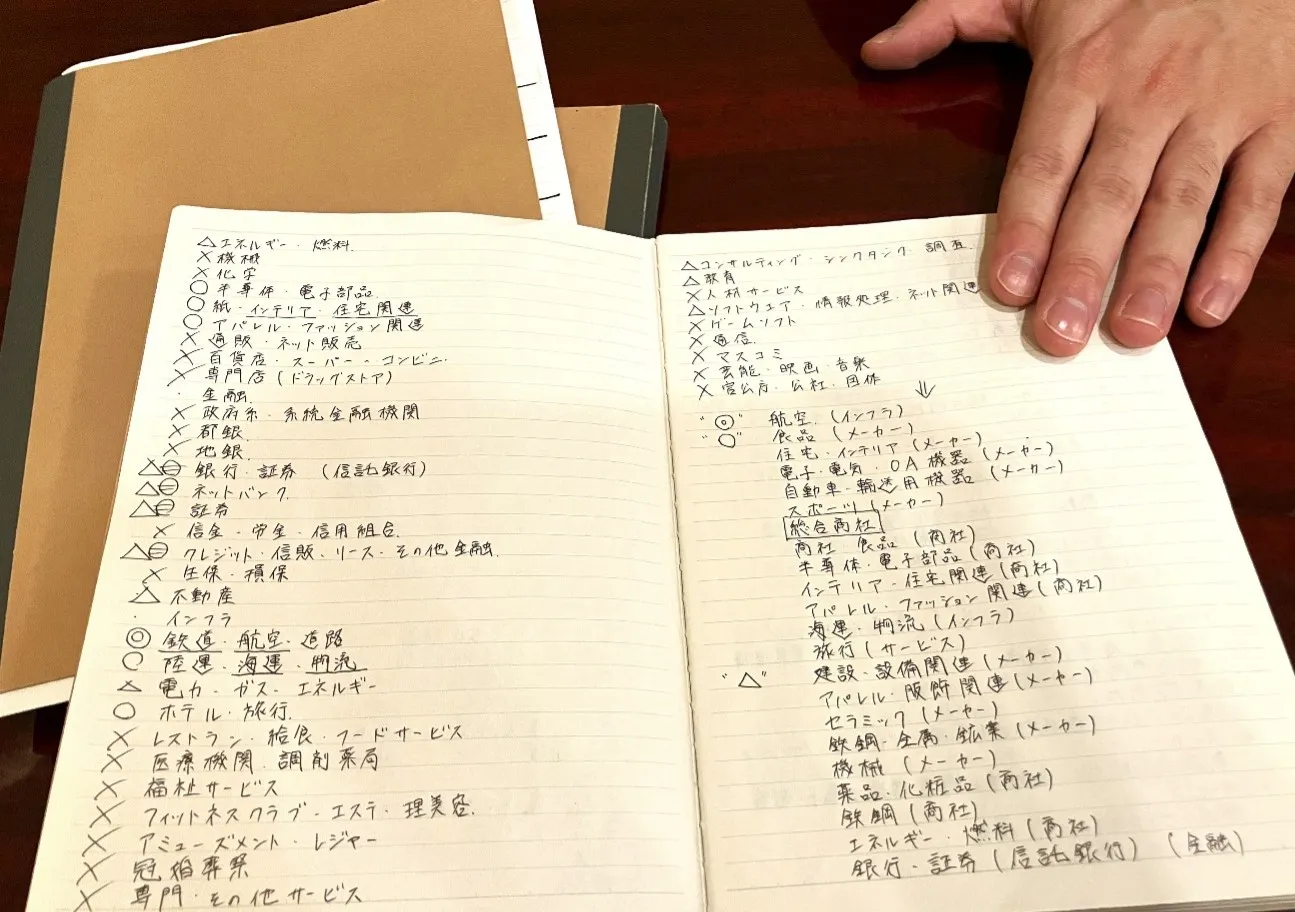 △エネルギー・燃料
×機械
×化学
○半導体・電子部品
○紙・インテリア・住宅関連
○アパレル・ファッション関連
×通販・ネット販売
×百貨店・スーパー・コンビニ
×専門店(ドラッグストア)
・金融
×政府系・系統金融機関
×都銀
×地銀
△○銀行・証券 (信託銀行)
△○ネットバンク
△○証券
×信金・労金・信用組合
△○クレジット・信販・リース・その他金融
×生保・損保
△不動産
・インフラ
◎鉄道・航空・道路
○陸運・海運・物流
△電力・ガス・エネルギー
○ホテル・旅行
×レストラン・給食・フードサービス
×医療機関・調剤薬局
×福祉サービス
×フィットネスクラブ・エステ・理美容
×アミューズメント・レジャー
×冠婚葬祭
×専門・その他サービス
△コンサルティング・シンクタンク・調査
△教育
×人材サービス
△ソフトウエア・情報処理・ネット関連
×ゲームソフト
×通信
×マスコミ
×芸能・映画・音楽
×官公庁・公社・団体
↓
"◎" 航空 (インフラ)
"○" 食品 (メーカー)
住宅・インテリア(メーカー)
電子・電気・OA機器(メーカー)
自動車・輸送用機器(メーカー)
スポーツ(メーカー)
総合商社
商社・食品(商社)
半導体・電子部品(商社)
インテリア・住宅関連(商社)
アパレル・ファッション関連(商社)
海運・物流(インフラ)
旅行(サービス)
"△" 建設・設備関連(メーカー)
アパレル・服飾関連(メーカー)
セラミック(メーカー)
鉄鋼・金属・鉱業(メーカー)
機械(メーカー)
薬品・化粧品(商社)
鉄鋼(商社)
エネルギー・燃料(商社)
銀行・証券(信託銀行)(金融)